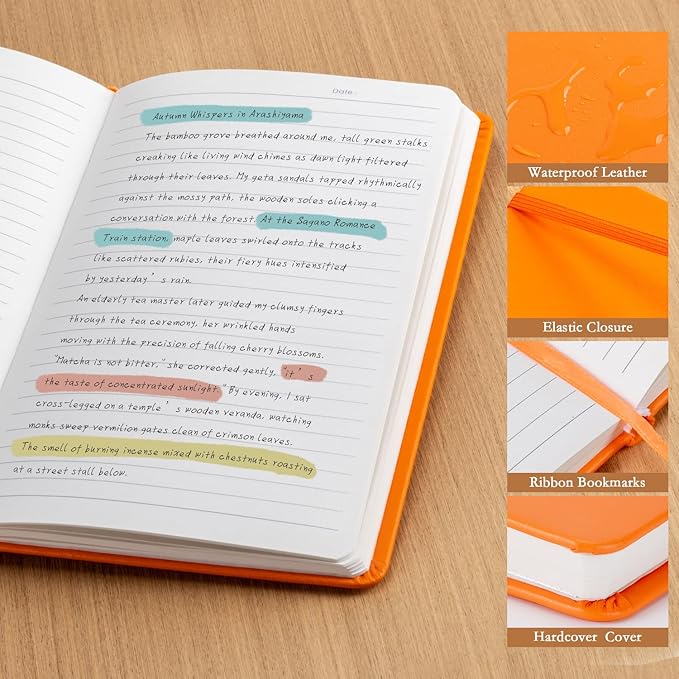 Date:
Autumn Whispers in Arashiyama
The bamboo grove breathed around me, tall green stalks
creaking like living wind chimes as dawn light filtered
through their leaves. My geta sandals tapped rhythmically
against the mossy path, the wooden soles clicking a
conversation with the forest. At the Sagano Romance
Train station, maple leaves swirled onto the tracks
like scattered rubies, their fiery hues intensified
by yesterday's rain.
An elderly tea master later guided my clumsy fingers
through the tea ceremony, her wrinkled hands
moving with the precision of falling cherry blossoms.
"Matcha is not bitter," she corrected gently, "it's
the taste of concentrated sunlight." By evening, I sat
cross-legged on a temple's wooden veranda, watching
monks sweep vermilion gates clean of crimson leaves.
The smell of burning incense mixed with chestnuts roasting
at a street stall below.
Waterproof Leather
Elastic Closure
Ribbon Bookmarks
Hardcover Cover